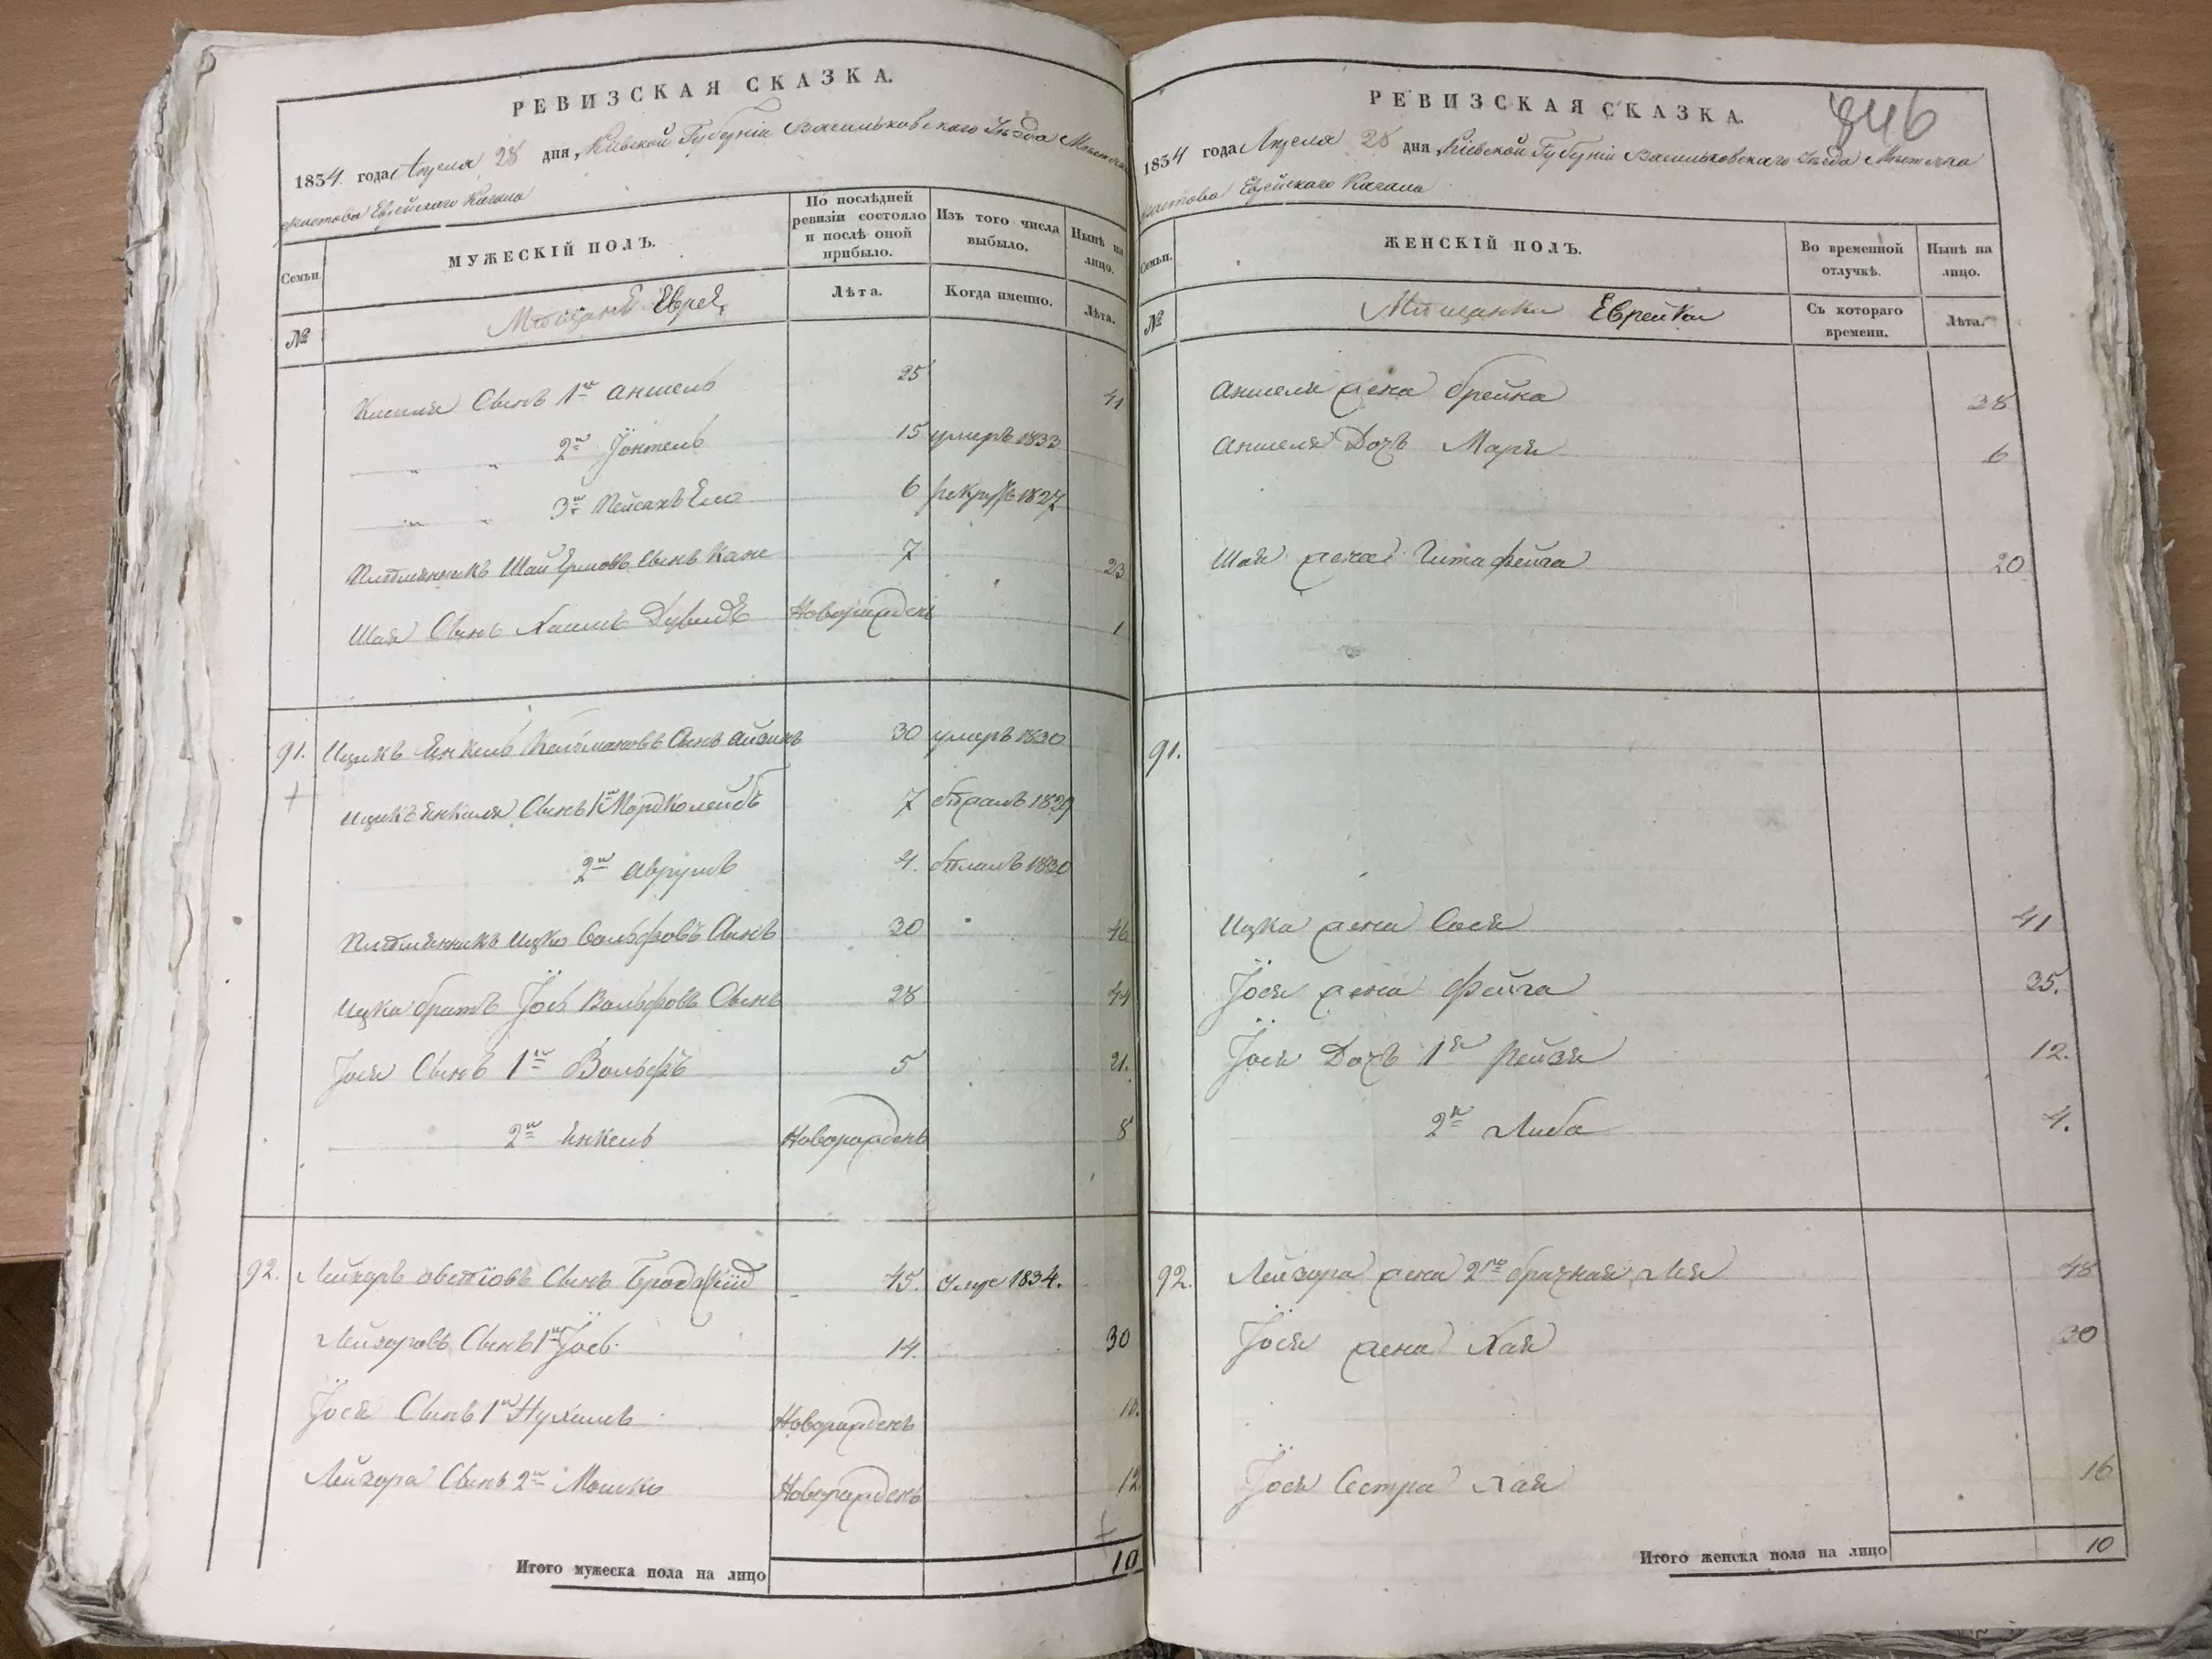 РЕВИЗСКАЯ СКАЗКА.
1834 года Апреля 28 дня, Кіевской Губерніи Васильковскаго Уѣзда Мѣстечка
Фастова Еврейскаго Кагала
Семьи.
МУЖЕСКІЙ ПОЛЪ.
По послѣдней ревизіи состояло и послѣ оной прибыло.
Изъ того числа выбыло.
Нынѣ на лицо.
№
Мѣщанъ Еврей
Лѣта.
Когда именно.
Лѣта.
Сынъ 1й Аншель 25 41
2й Іонтель 15 умеръ 1833
3й Пейсахъ 6 рекрутъ 1827
Племянникъ Шай Сынъ 7 23
Шая Сынъ Хаимъ Дувидъ Новорожденъ 1
91. Ицикъ Енкель Кельмановъ Сынъ Айзикъ 30 умеръ 1830
Ицикъ Енкеля Сынъ 1й Мордколейбъ 7 1829
2й Аврумъ 4. 1830
Племянникъ Ицко Вольфовъ Сынъ 30 46
Ицка братъ Іось Вольфовъ Сынъ 28 44
Іося Сынъ 1й Вольфъ 5 21.
2й Енкель Новорожденъ 8
92. Лейзоръ Сынъ 45. Умре 1834.
Лейзоровъ Сынъ 1й Іось 14. 30
Іося Сынъ 1й Нухимъ Новорожденъ 10.
Лейзора Сынъ 2й Мошко Новорожденъ 12
Итого мужеска пола на лицо 10
РЕВИЗСКАЯ СКАЗКА.
846
1834 года Апреля 28 дня, Кіевской Губерніи Васильковскаго Уѣзда Мѣстечка
Фастова Еврейскаго Кагала
Семьи.
ЖЕНСКІЙ ПОЛЪ.
Во временной отлучкѣ.
Нынѣ на лицо.
№
Мѣщанки Еврейки
Съ котораго времени.
Лѣта.
Аншеля жена брейна 38
Аншеля Дочь Марья 6
Шая жена Гита фейга 20
91.
Ицка жена Сося 41
Іося жена Фейга 35.
Іося Дочь 1я Рейзя 12.
2я Либа 4.
92. Лейзора жена 2го брачная Лея 48
Іося жена Хая 30
Іося Сестра Хая 16
Итого женска пола на лицо 10